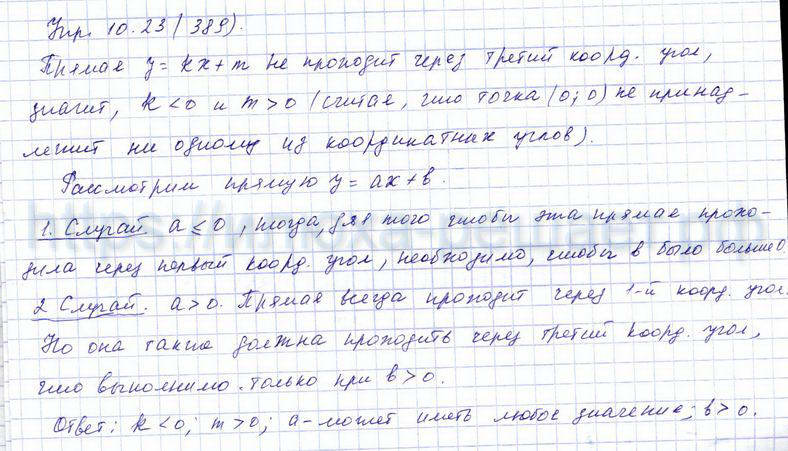 Упр. 10.23 (389).
Прямая y = kx + m не проходит через третий коорд. угол,
значит, k < 0 и m > 0 (считая, что точка (0; 0) не принад-
лежит ни одному из координатных углов).
Рассмотрим прямую y = ax + в.
1. Случай. a ≤ 0, тогда для того чтобы эта прямая прохо-
дила через первый коорд. угол, необходимо, чтобы в было больше 0
2 Случай. a > 0. Прямая всегда проходит через 1-й коорд. угол.
Но она также должна проходить через третий коорд. угол,
что выполнимо только при в > 0.
Ответ: k < 0; m > 0; a - может иметь любое значение; в > 0.